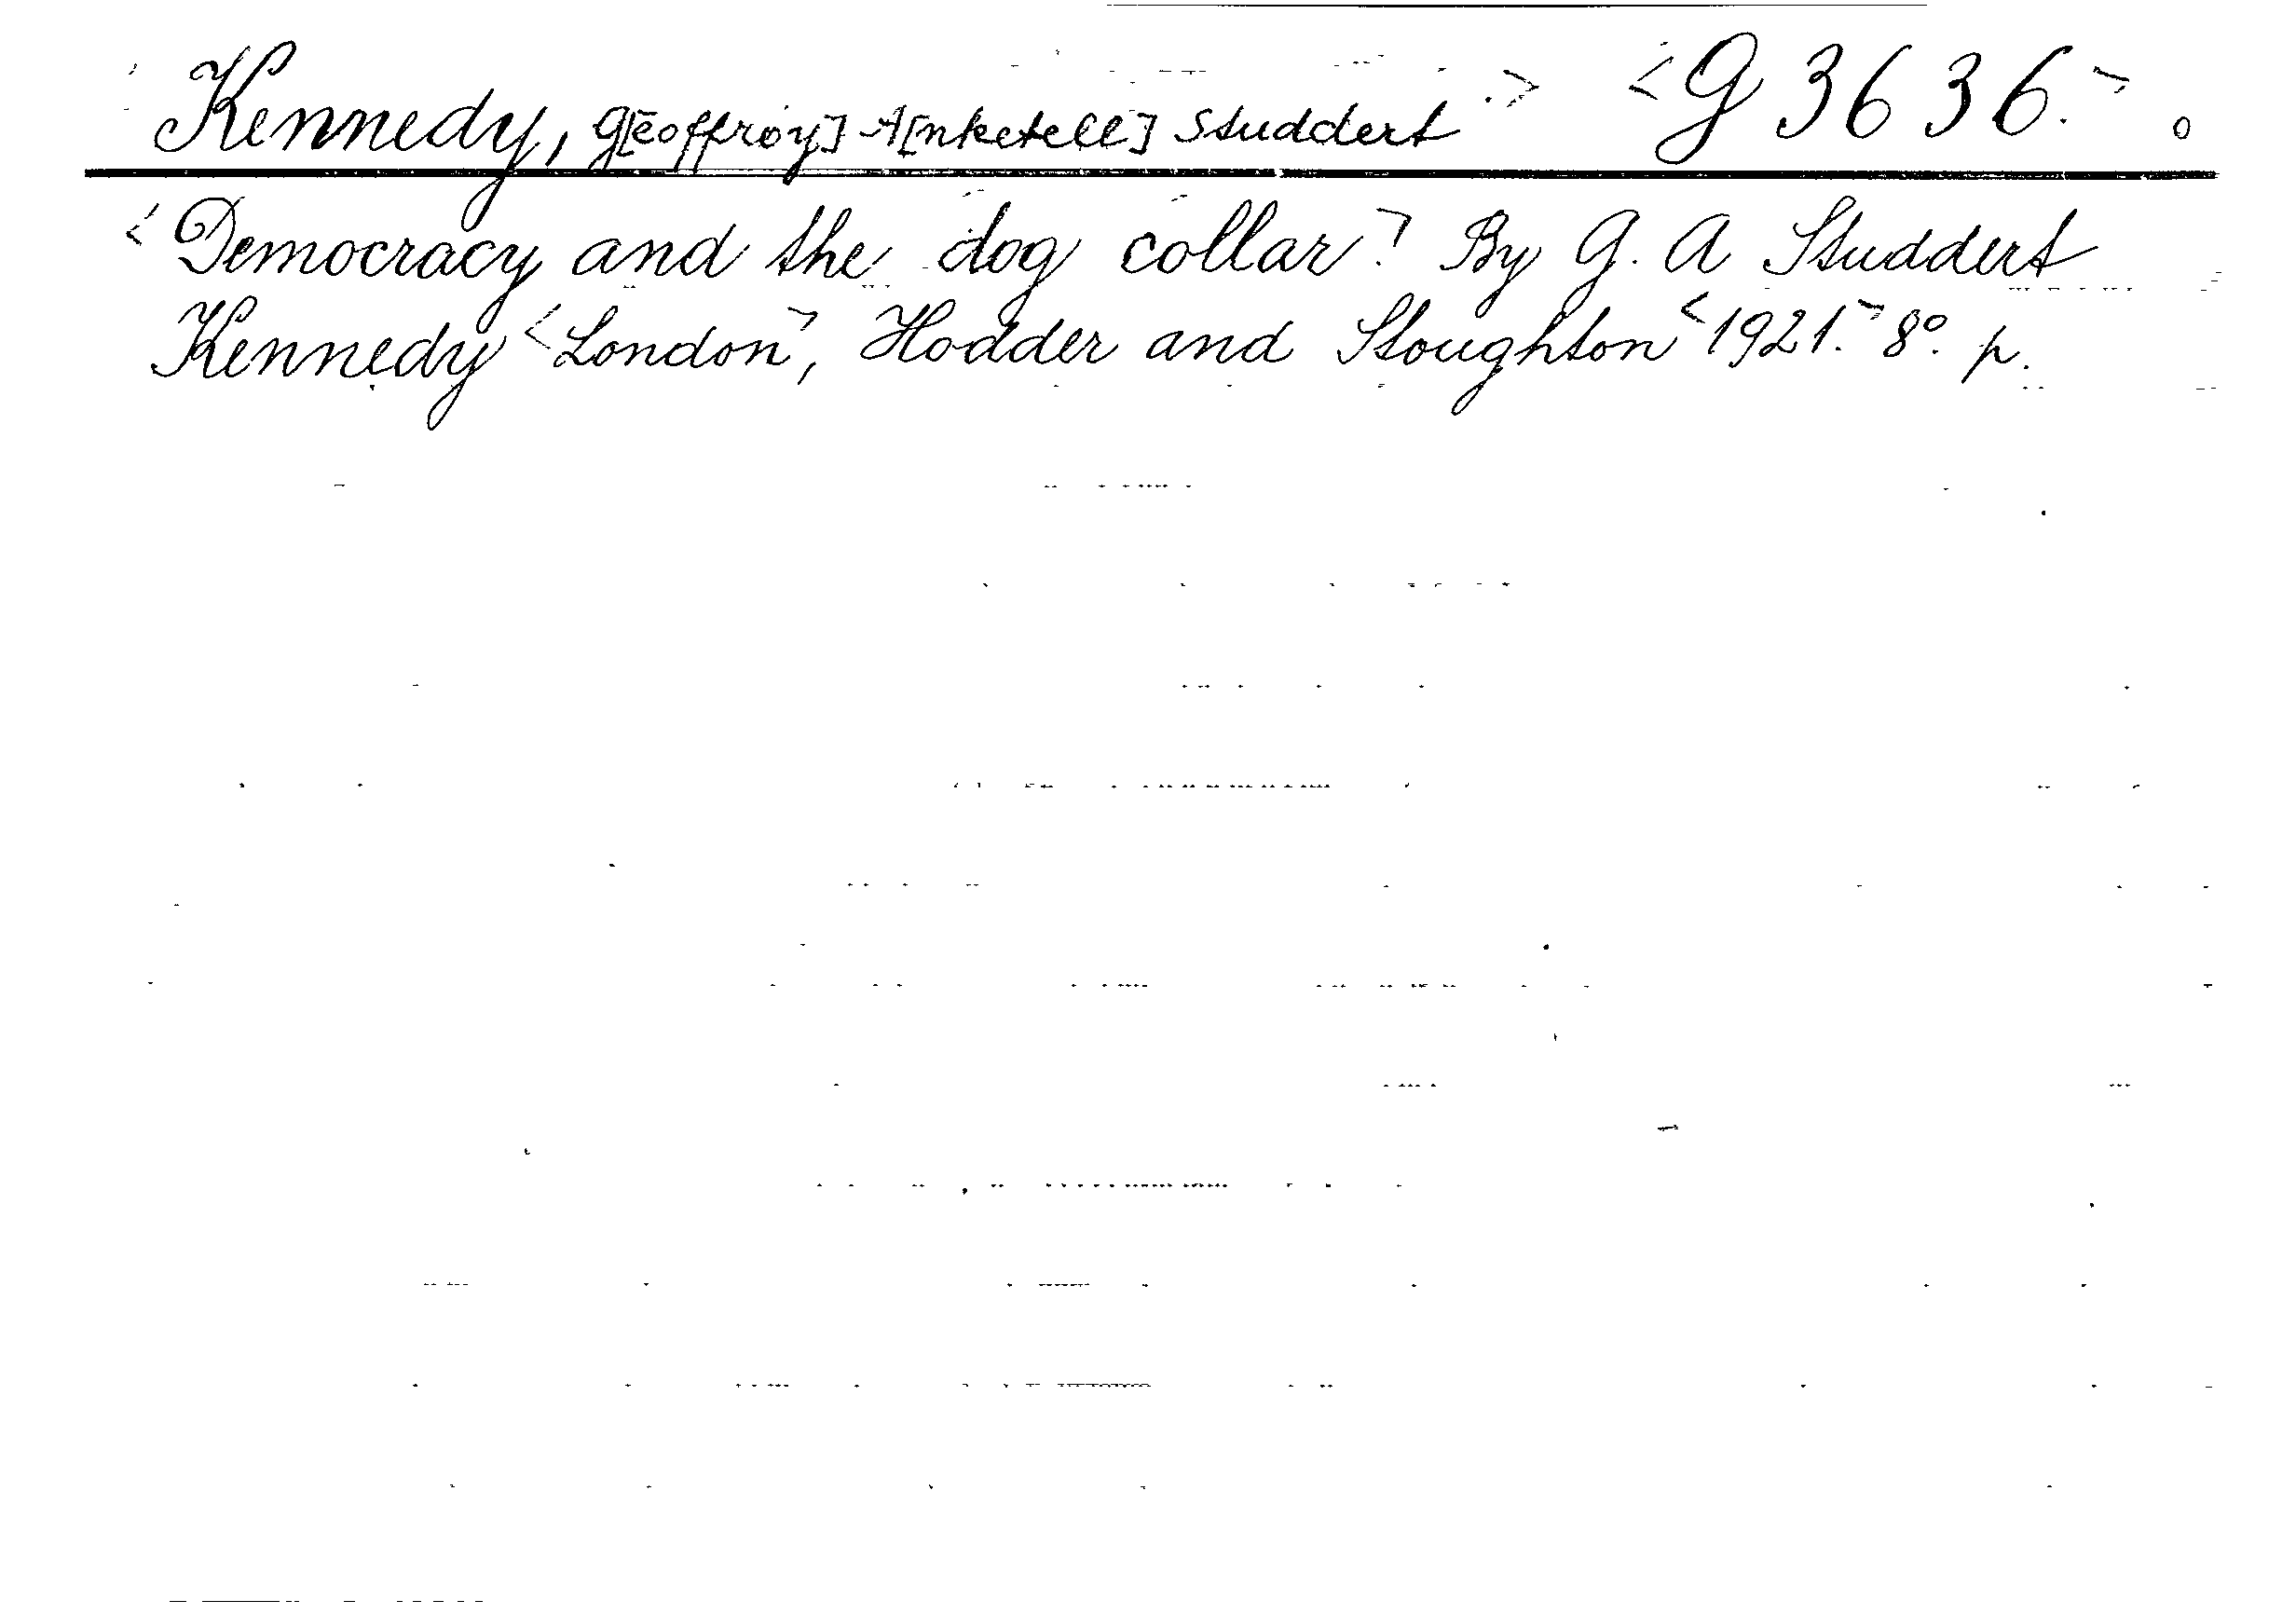 Kennedy, G[eoffroy] A[nketell] Studdert > <G 3636.> o
<Democracy and the dog collar.> By G. A Studdert
Kennedy <London>, Hodder and Stoughton <1921.> 8°. p.